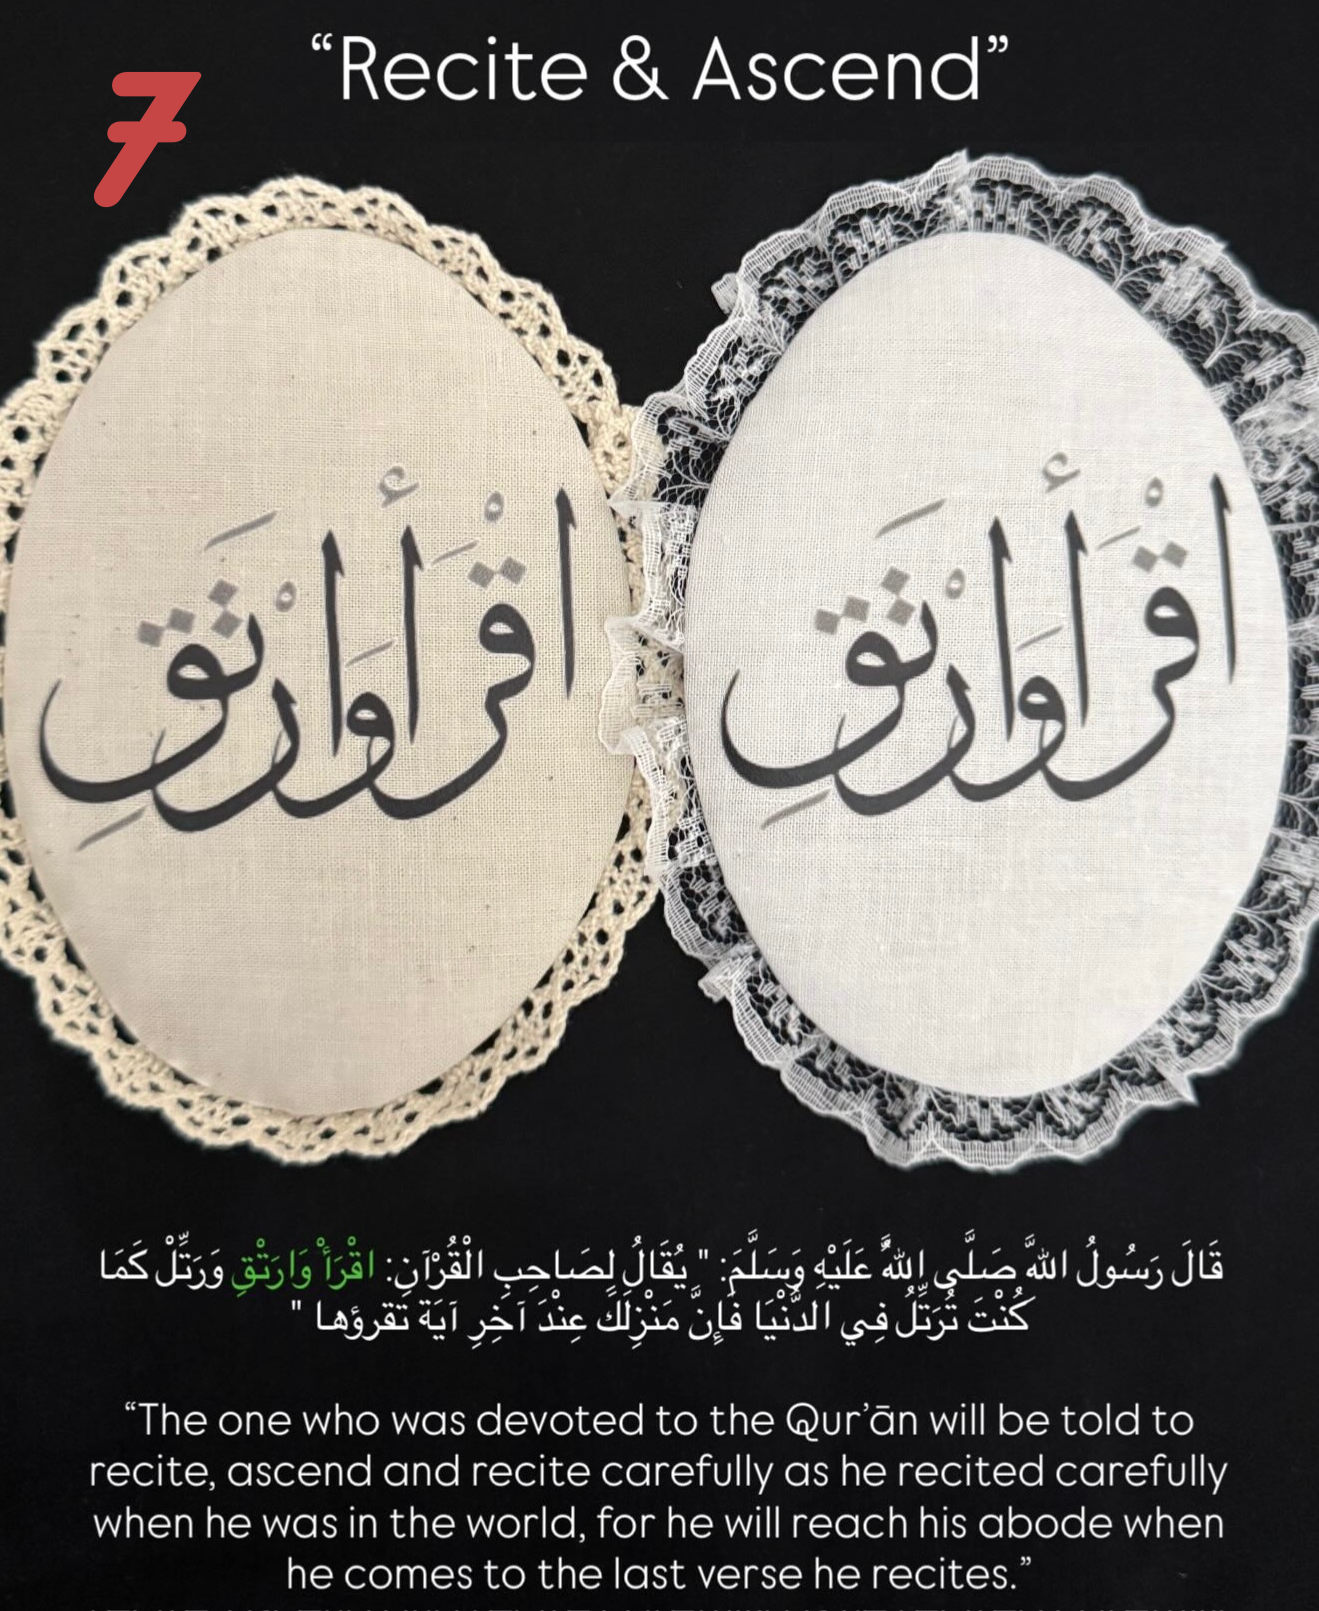 “Recite & Ascend”
7
اقْرَأْ وَارْتَقِ
اقْرَأْ وَارْتَقِ
قَالَ رَسُولُ اللهَّ صَلَّى اللهُّ عَلَيْهِ وَسَلَّمَ: " يُقَالُ لِصَاحِبِ الْقُرْآنِ: اقْرَأْ وَارَتْقِ وَرَتِّلْ كَمَا
كُنْتَ تُرَتِّلُ فِي الدُّنْيَا فَإِنَّ مَنْزِلَكَ عِنْدَ آخِرِ آيَة تقرؤها "
“The one who was devoted to the Qur’ān will be told to
recite, ascend and recite carefully as he recited carefully
when he was in the world, for he will reach his abode when
he comes to the last verse he recites.”